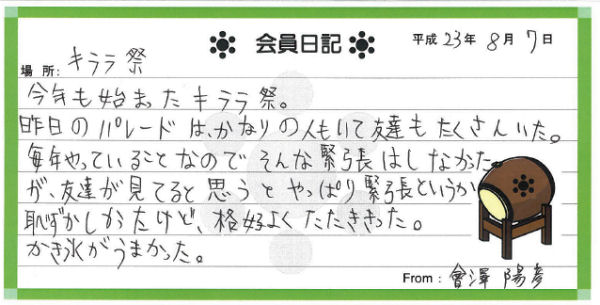 会員日記
平成23年8月7日
場所: キララ祭
今年も始まったキララ祭。
昨日のパレードは、かなりの人もいて友達もたくさんいた。
毎年やっていることなのでそんな緊張はしなかった。
が、友達が見てると思うとやっぱり緊張というか
恥ずかしかったけど、格好よくたたききった。
かき氷がうまかった。
From: 會澤 陽彦